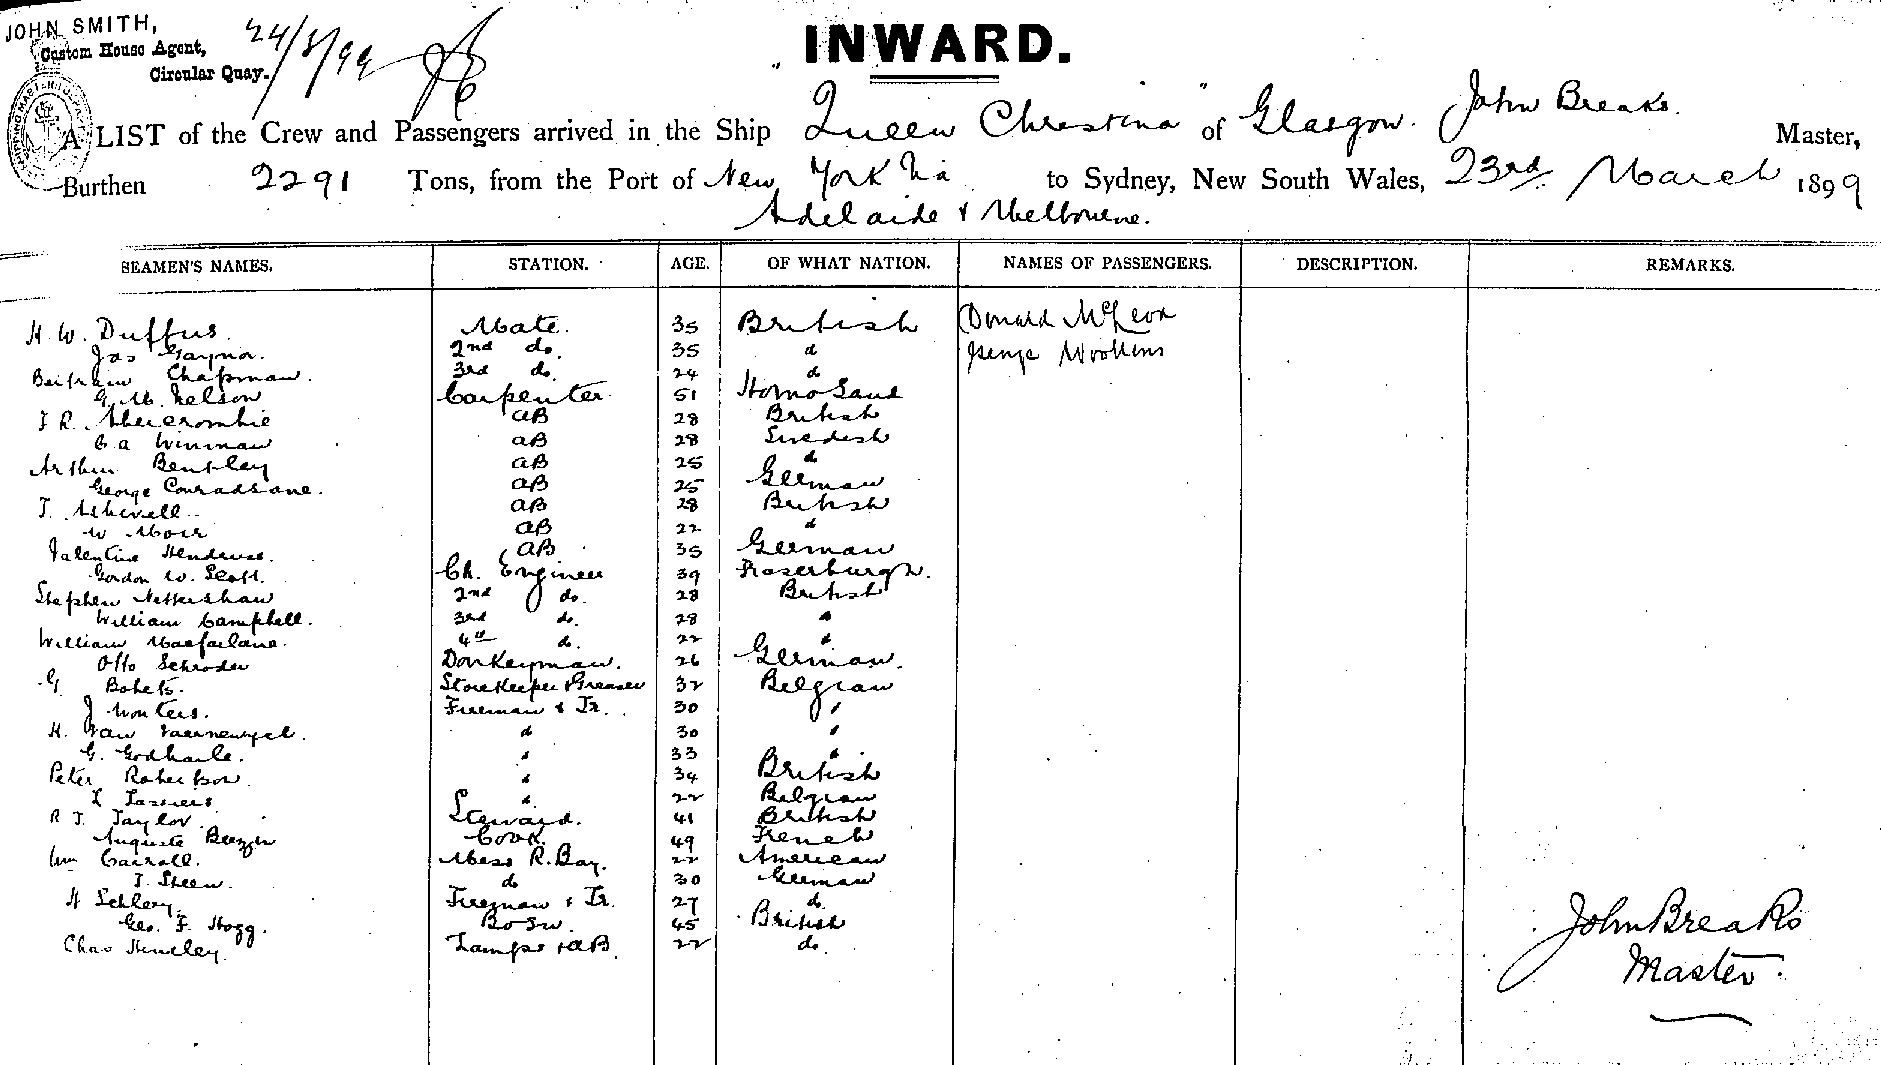 JOHN SMITH,
Custom House Agent,
Circular Quay.
24/3/99
INWARD.
A LIST of the Crew and Passengers arrived in the Ship "Queen Christina" of Glasgow. John Breaks. Master,
Burthen 2291 Tons, from the Port of New York Via to Sydney, New South Wales, 23rd. March 1899
Adelaide & Melbourne.
SEAMEN'S NAMES. STATION. AGE. OF WHAT NATION. NAMES OF PASSENGERS. DESCRIPTION. REMARKS.
H. W. Duffus. Mate. 35 British Donald McLeod
Jas Gaynor. 2nd do. 35 d George
Chapman. 3rd do. 24 d
G. M. Nelson Carpenter 51 
J R. Abercrombie AB 28 British
C. A Winman AB 28 Swedish
Arthur Bentley AB 25 d
George Conradsane. AB 25 German
T. Ashwell AB 28 British
W Moir AB 22 d
Valentine AB 35 German
Gordon W. Scott. Ch. Engineer 39 Fraserburgh.
Stephen Nettershaw 2nd do. 28 British
William Campbell. 3rd do. 28 "
William Macfarlane. 4th do. 22 "
Otto Schroder Donkeyman. 26 German.
G Bohets. Storekeeper & Greaser 32 Belgian
J Wouters. Fireman & Tr. 30 "
H. Van d 30 "
G. " 33 "
Peter Robertson " 34 British
L d 22 Belgian
R J. Taylor Steward. 41 British
Auguste Cook. 49 French
Wm Carroll. Mess R. Boy. 22 American
J. Steen. do 30 German
H Schley. Fireman & Tr. 27 do.
Geo. F. Hogg. Bosn. 45 British
Chas Hindley. Lamps & AB. 22 do.
John Breaks
Master.